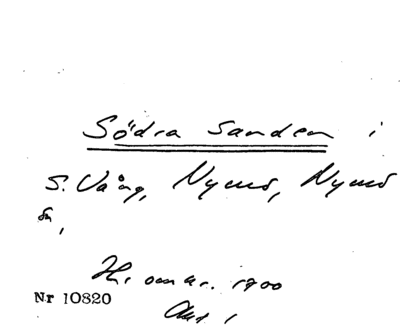 Södra Sanden i
S. Vång, Nymö, Nymö
sn,
H. omkr. 1700
Nr 10820